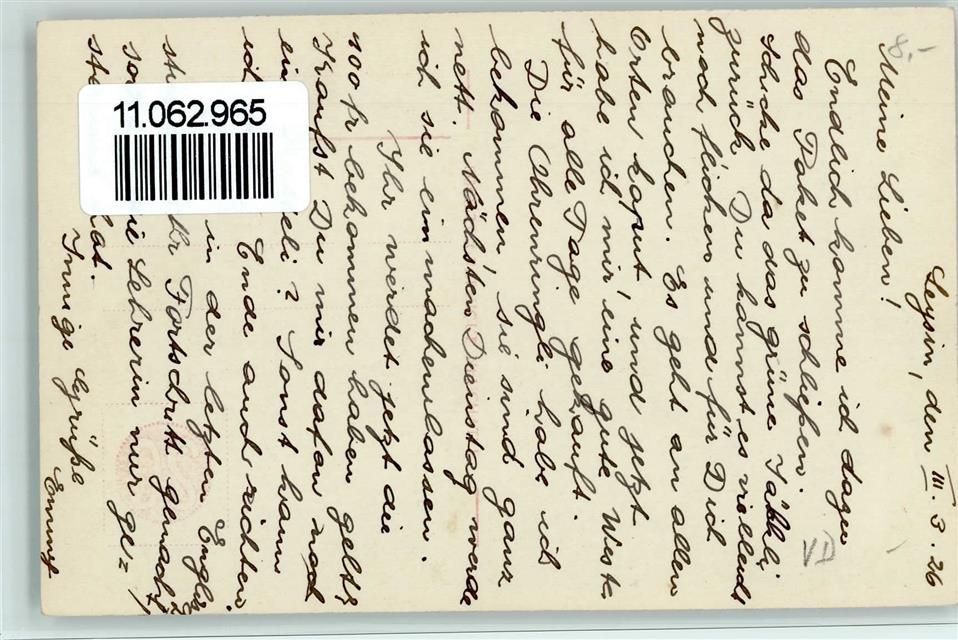 8.-
Leysin, den III. 3. 26
Meine Lieben!
Endlich komme ich dazu
das Paket zu schließen.
Schicke da das grüne
zurück. Du kannst es vielleicht
noch flicken und für Dich
brauchen. Es geht an allen
Orten kaput, und jetzt
habe ich mir eine gute Weste
für alle Tage gekauft.
Die Ohrenringli habe ich
bekommen, sie sind ganz
nett. Nächsten Dienstag werde
ich sie einmachen lassen.
Ihr werdet jetzt die
100 fr bekommen haben gelt?
Kaufst Du mir dafon noch
ein eli? Sonst kann
ich Ende auch richten.
in der letzten Englisch
hr Fortschritt gemacht
ie Lehrerin nur ge=
Innige Grüße
Emmy
VII
11.062.965